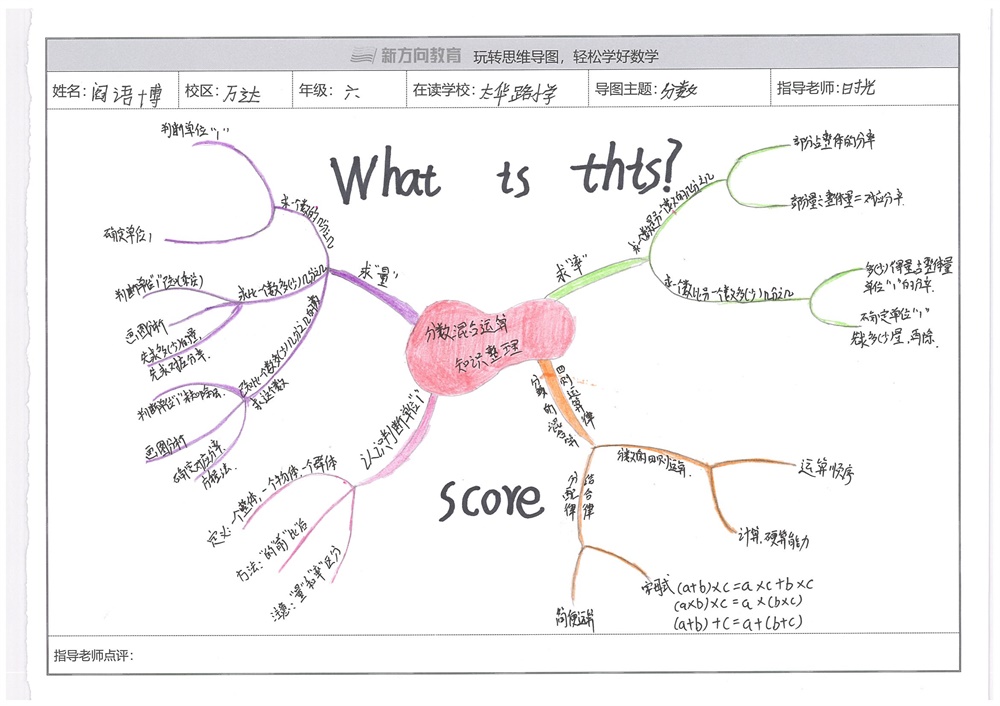 新方向教育 玩转思维导图，轻松学好数学
姓名：阎语博 校区：万达 年级：六 在读学校：大华路小学 导图主题：分数 指导老师：时光
What ts thts?
score
分数混合运算
知识整理
求"量"
求一个数的几分之几
判断单位"1"
确定单位1
求比一个数多(少)几分之几
画图分析
先求多(少)的量,
先求对应分率.
求这个数
画图分析
确定对应分率.
方程法.
求"率"
求一个数是另一个数的几分之几
部分占整体的分率
部分量÷整体量=对应分率.
求一个数比另一个数多(少)几分之几
多(少)得量占整体量
单位"1"的几率.
不确定单位"1"
先求多(少)量,再除.
认识判断单位"1"
定义:一个整体,一个物体,一个群体
方法:"的"前"比"后
注意:"量"和"率"区分
分数的混合
四则运算律
分数的四则运算.
运算顺序
计算,硬算能力
分配律
结合律
简便运算
(a+b)×c=a×c+b×c
(a×b)×c=a×(b×c)
(a+b)+c=a+(b+c)
指导老师点评：